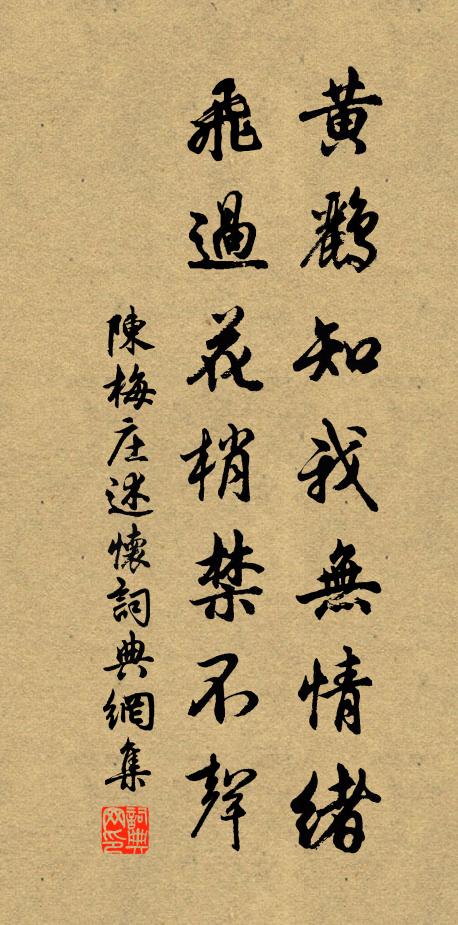 黄鸝知我無情緒
飛過花梢禁不聲
陳梅庄述懷詞典網集
詞典
网印